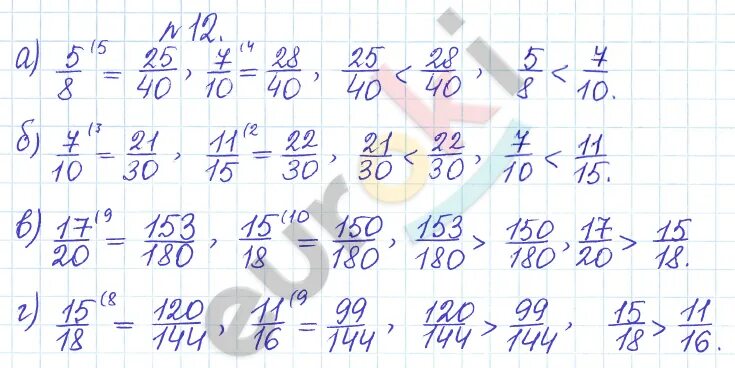 №12.
а) 5/8 (5 = 25/40, 7/10 (4 = 28/40, 25/40 < 28/40, 5/8 < 7/10.
б) 7/10 (3 = 21/30, 11/15 (2 = 22/30, 21/30 < 22/30, 7/10 < 11/15.
в) 17/20 (9 = 153/180, 15/18 (10 = 150/180, 153/180 > 150/180, 17/20 > 15/18.
г) 15/18 (8 = 120/144, 11/16 (9 = 99/144, 120/144 > 99/144, 15/18 > 11/16.
euroki